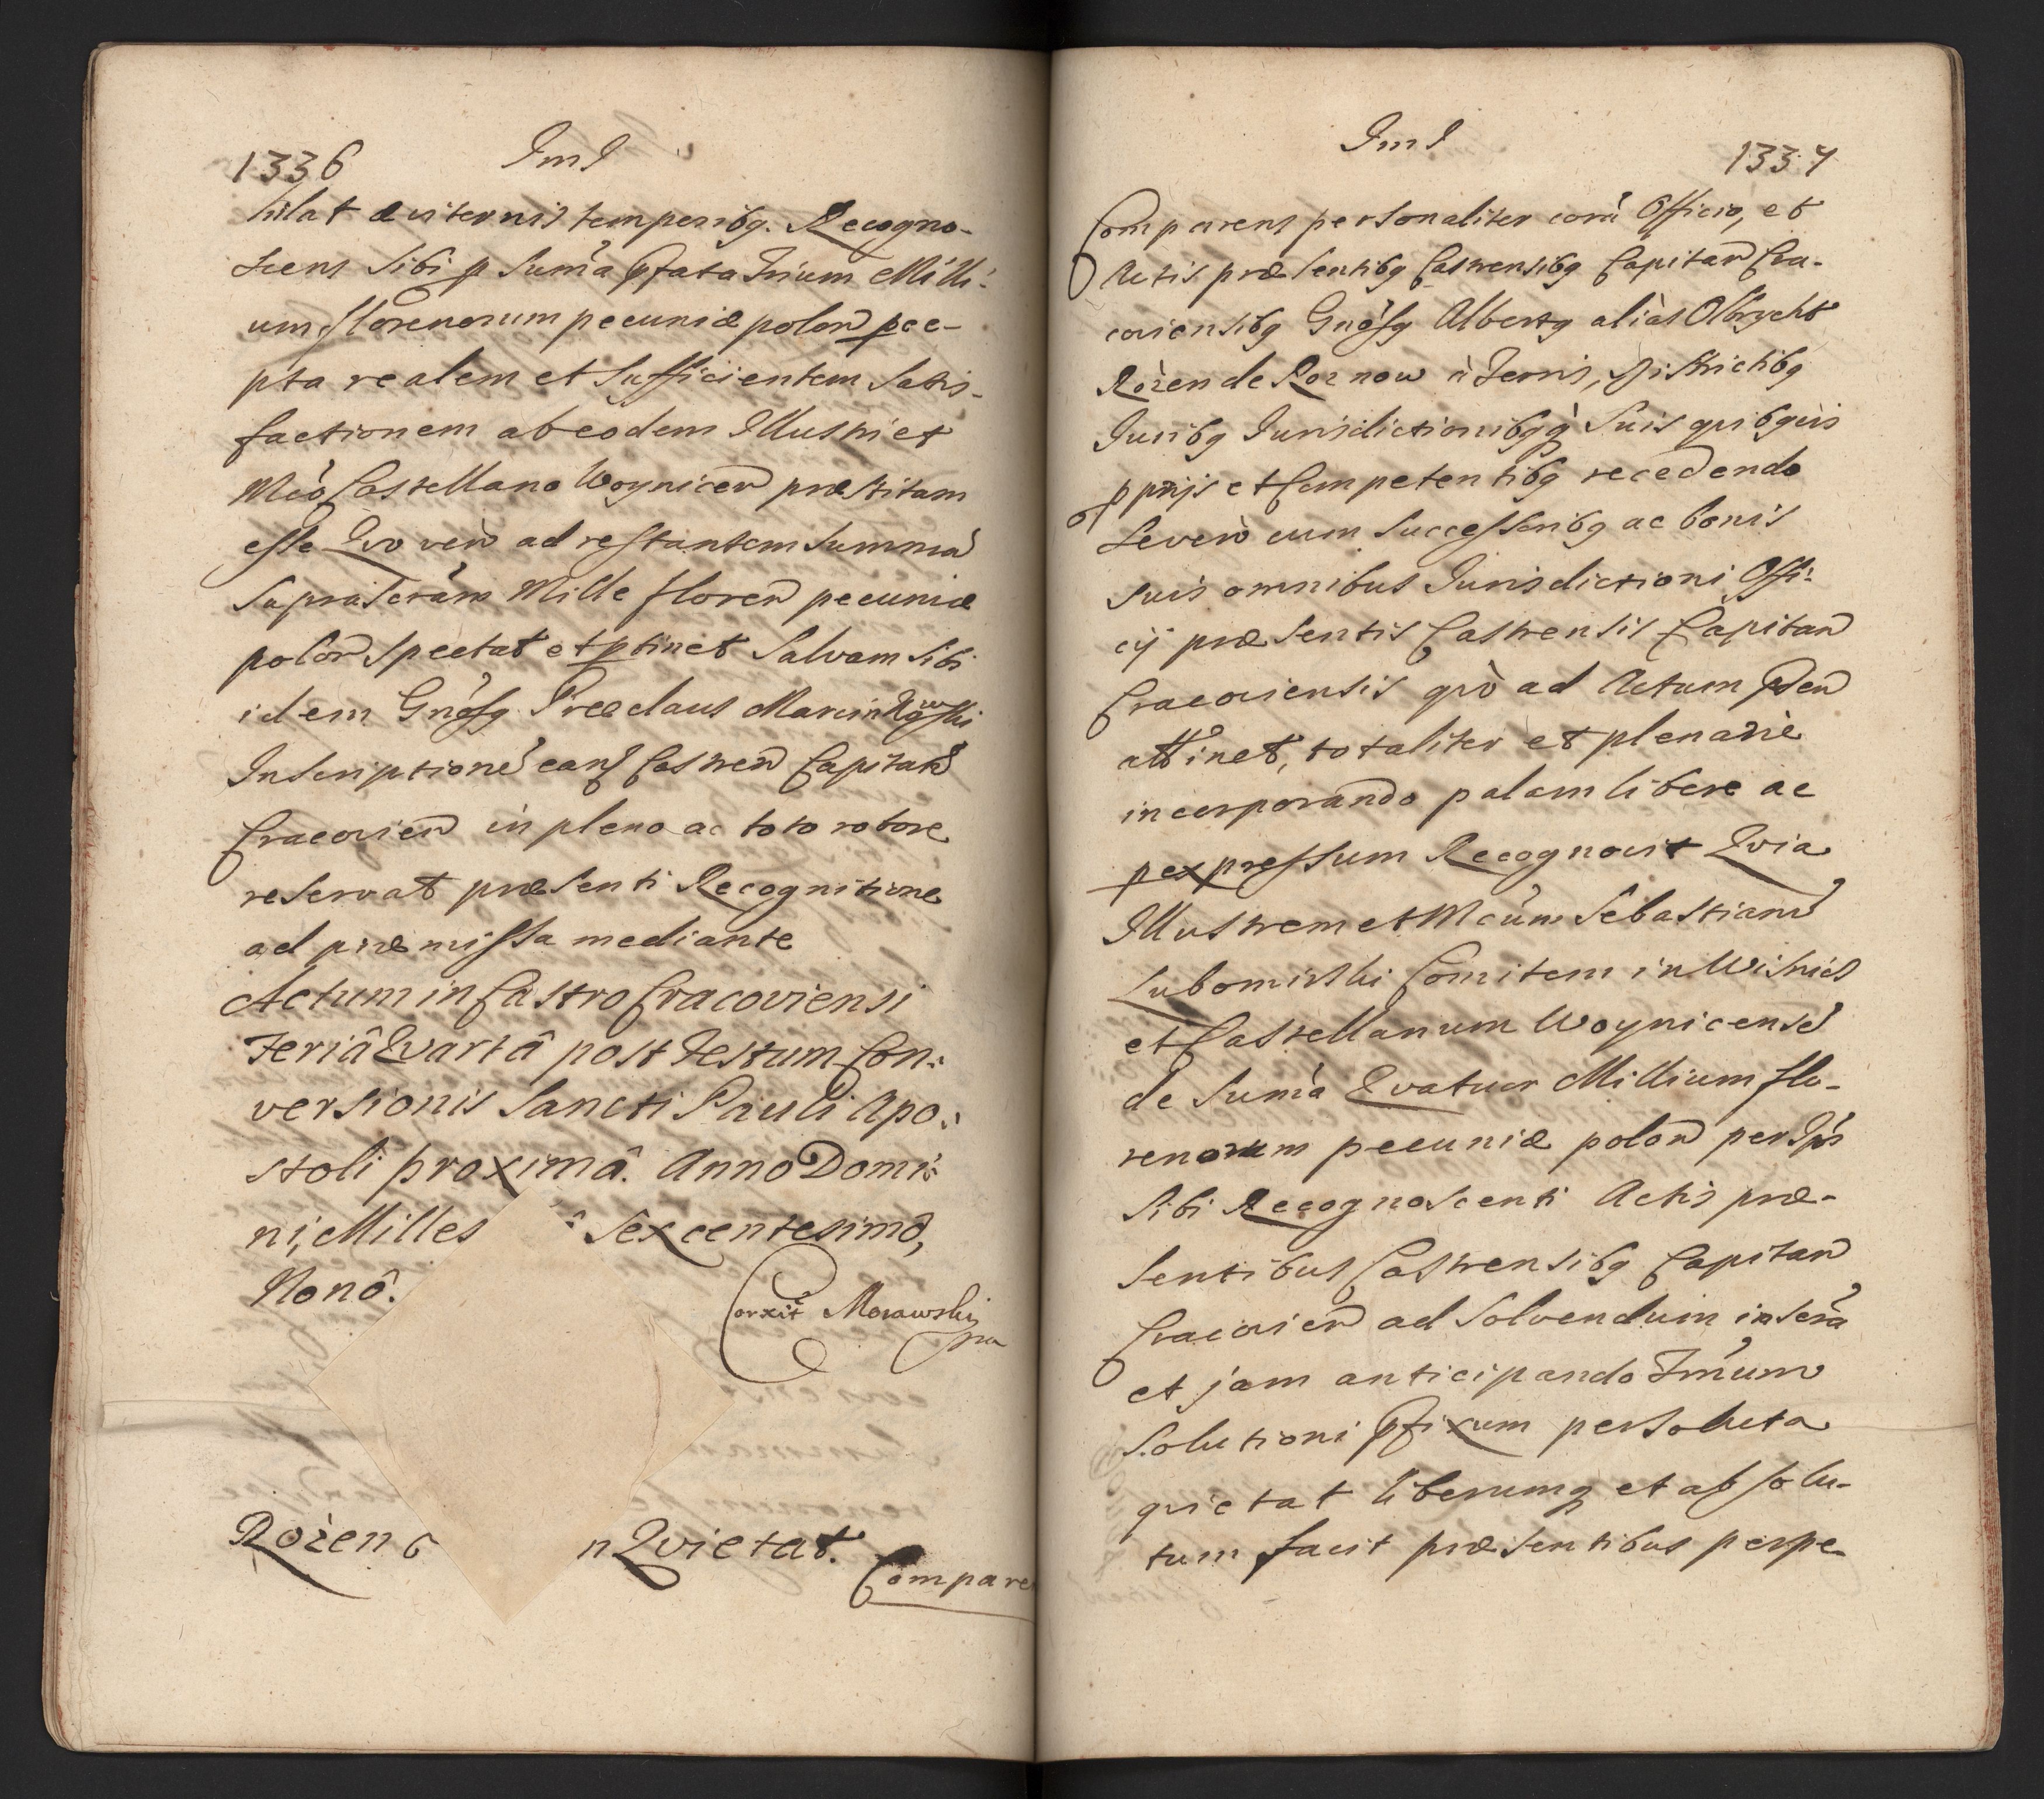 1336 ImI
hilat æviternis temporibq. Recogno-
scens sibi p sum̃a p̃fata Trium Milli:
um florenorum pecuniæ polon̄ pce-
pta realem et sufficientem satis-
factionem ab eodem Illustri et
Mc̃o Castellano Woynicen̄ præstitam
esse Qvo vero ad restantem summã
suprascr̃am Mille floren̄ pecuniæ
polon̄ spectat et ptinet salvam sibi
idem Gñosq
Inscriptionẽ Castren̄ Capitan̄
Cracovien̄ in pleno ac toto robore
reservat præsenti Recognitione
ad præmissa mediante
Actum in Castro Cracoviensi
Feriâ Qvartâ post Festum Con:
versionis Sancti Pauli Apo:
stoli proximâ. Anno Domi:
ni, Milles sexcentesimô,
Nonô.
Corxit Morawski
mp
Rożen n Qvietat.
Compare
ImI 1337
Comparens personaliter corã Officio, et
Actis præsentibq Castrensibq Capitan̄ Cra-
coviensibq Gñosq Albertq aliàs Olbrycht
Rożen de Roznow à Terris, Districtibq
Juribq Jurisdictionibqq̀ suis qvibqvis
pprijs et Competentibq recedendo
Severò cum Successoribq ac bonis
suis omnibus Jurisdictioni Offi:
cij præsentis Castrensis Capitan̄
Cracoviensis qvò ad Actum p̃den̄
attinet, totaliter et plenariè
incorporando palam libere ac
pexpressum Recognovit Qvia
Illustrem et Mc̃um Sebastianũ
Lubomirski Comitem in Wisnicz
et Castellanum Woynicensẽ
de sum̃a Qvatuor Millium flo-
renorum pecuniæ polon̄ per Ip̃s
sibi Recognoscenti Actis præ-
sentibus Castrensibq Capitan̄
Cracovien̄ ad solvendum inscr̃a
et jam anticipando Tm̃um
solutioni p̃fixum persoluta
qvietat liberumq et absolu-
tum facit præsentibus perpe-